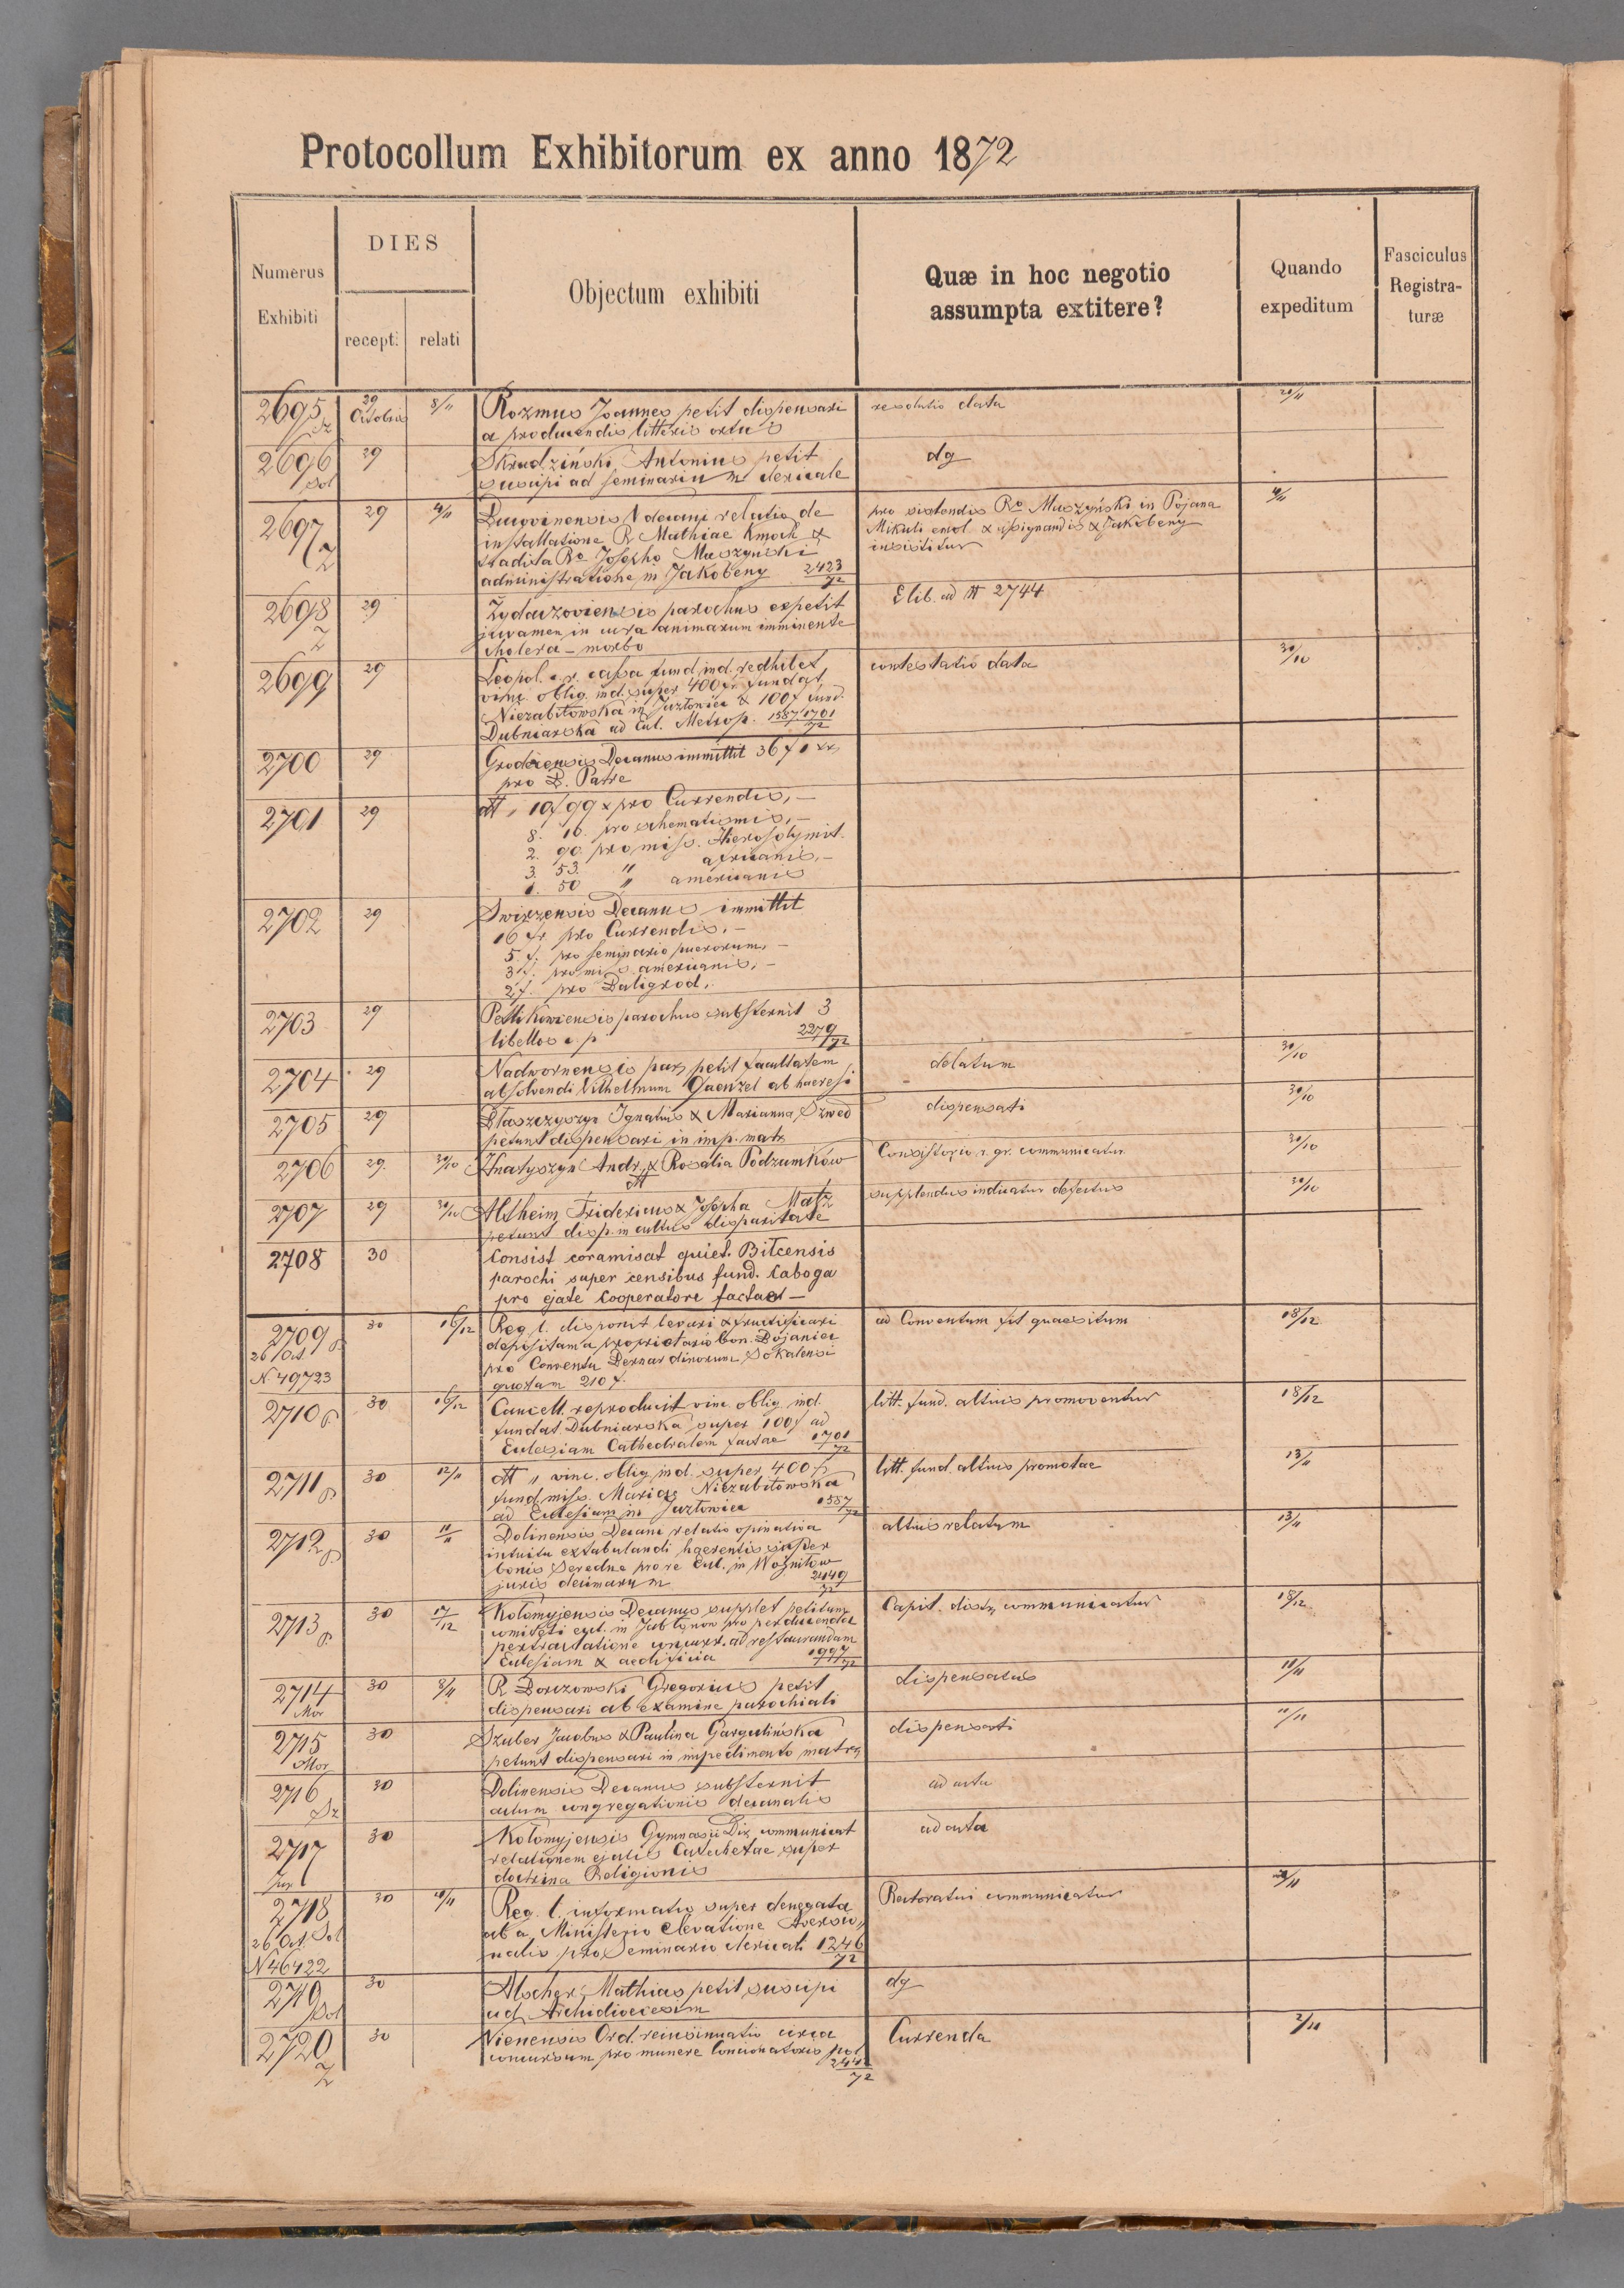 Protocollum Exhibitorum ex anno 1872
Numerus Exhibiti
DIES
recept:
relati
Objectum exhibiti
Quæ in hoc negotio assumpta extitere?
Quando expeditum
Fasciculus Registra-turæ
2695 29 Octobris 8/11 Rozmus Joannes petit dispensari resolutio data 20/11
a producendis litteris ortus
2696 29 Skrudziński Antonius petit dg
suscipi ad seminarium clericale
2697 29 Bucovinensis Vdecani relatio de pro sistendis Ro Muszyński in Pojana
Z installatione R. Mathiae Kmoch & Mikuli emol. & assignandis & Jakobeny
tradita Ro Josepho Muszynski insistitur
administratione in Jakobeny 2423/72
2698 29 Żydaczoviensis parochus expetit Elib. ad N 2744
Z juvamen in cura animarum imminente
cholera - morbo
2699 29 Leopol. c. r. cassa fund. ind. redhibet contestatio data 30/10
vinc. oblig. ind. super 400 fr fundat.
Niezabitowska in Jazłowiec & 100 f fund.
Dubniarska ad Eul. Metrop. 1587/1701/72
2700 29 Grodecensis Decanus immittit 36 f 1 xr,
pro S. Patre
2701 29 dtt, 10 f 99 x pro Currendis, -
8. 16. pro schematismis, -
2. 90. pro miss. Hierosolymit.
3. 53. " africanis, -
1. 50 " americanis
2702 29 Swirzensis Decanus immittit
16 fr pro Currendis, -
5 f. pro seminario puerorum, -
3 f. pro miss. americanis, -
2 f. pro Baligrod,
2703 29 Petlikowensis parochus substernit 3
libellos c. p 2279/72
2704 29 Nadwornensis par, petit facultatem delatum 30/10
absolvendi Vilhelmum Gaenzel ab haeresi
2705 29 Błaszczyszyn Ignatius & Marianna Szwed dispensati 30/10
petunt dispensari in imp. matr
2706 29. 30/10 Hnatyszyn Andr. & Rosalia Podzamków Consistorio r. gr. communicatur 30/10
dtt
2707 29 30/10 Altheim Fridericus & Josepha Matz supplendus indicatur defectus 30/10
petunt disp. in cultus disparitate
2708 30 Consist coramisat quiet. Bilcensis
parochi super censibus fund. Caboga
pro ejate Cooperatore factas -
2709 30 16/12 Reg. l. disponit levari & fructificari ad Conventum fit quaesitum 18/12
26 Oct. depositam a proprietario bon. Bojaniec
N. 49723 pro Conventu Bernardinorum Sokalensi
quotam 210 f.
2710 30 16/12 Cancell. reproducit vinc. oblig. ind. litt. fund. altius promoventur 18/12
fundat. Dubniarska super 100 f ad
Eulesiam Cathedralem factae 1701/72
2711 30 12/11 dtt, vinc. oblig. ind. super 400 fr litt. fund. altius promotae 13/11
fund. miss. Mariae Niezabitowska
ad Eulesiam in Jazłowiec 1587/72
2712 30 11/11 Dolinensis Decani relatio opinativa altius relatum 13/11
intuitu extabulandi haerentis super
bonis Seredne pro re Eul. in Wojniłow
juris decimarum 2149/72
2713 30 17/12 Kołomyjensis Decanus supplet petitum Capit. distr, communicatur 18/12
comiteti eccl. in Jabłonow pro perducenda
pertractatione concurr. ad restaurandam
Eulesiam & aedificia 1997/72
2714 30 8/11 R. Borczowski Gregorius petit dispensatus 11/11
Mor dispensari ab examine parochiali
2715 30 Szuber Jacobus & Paulina Gargulińska dispensati 11/11
Mor petunt dispensari in impedimento matr,
2716 30 Dolinensis Decanus substernit ad acta
actum congregationis decanalis
2717 30 Kołomyjensis Gymnasii Dir, communicat ad acta
relationem ejatis Catechetae super
doctrina Religionis
2718 30 Reg. l. informatio super denegata Rectoratui communicatur
26 Oct. Pol ab a. Ministerio elevatione
N 46422 pro Seminario clericali 1246/72
2719 30 Alscher Mathias petit suscipi dg
Pol ad Archidiecesim
2720 30 Vienensis Ord. reinsinuatio circa Currenda 2/11
Z concursum pro munere Concionatoris pol.
244/72